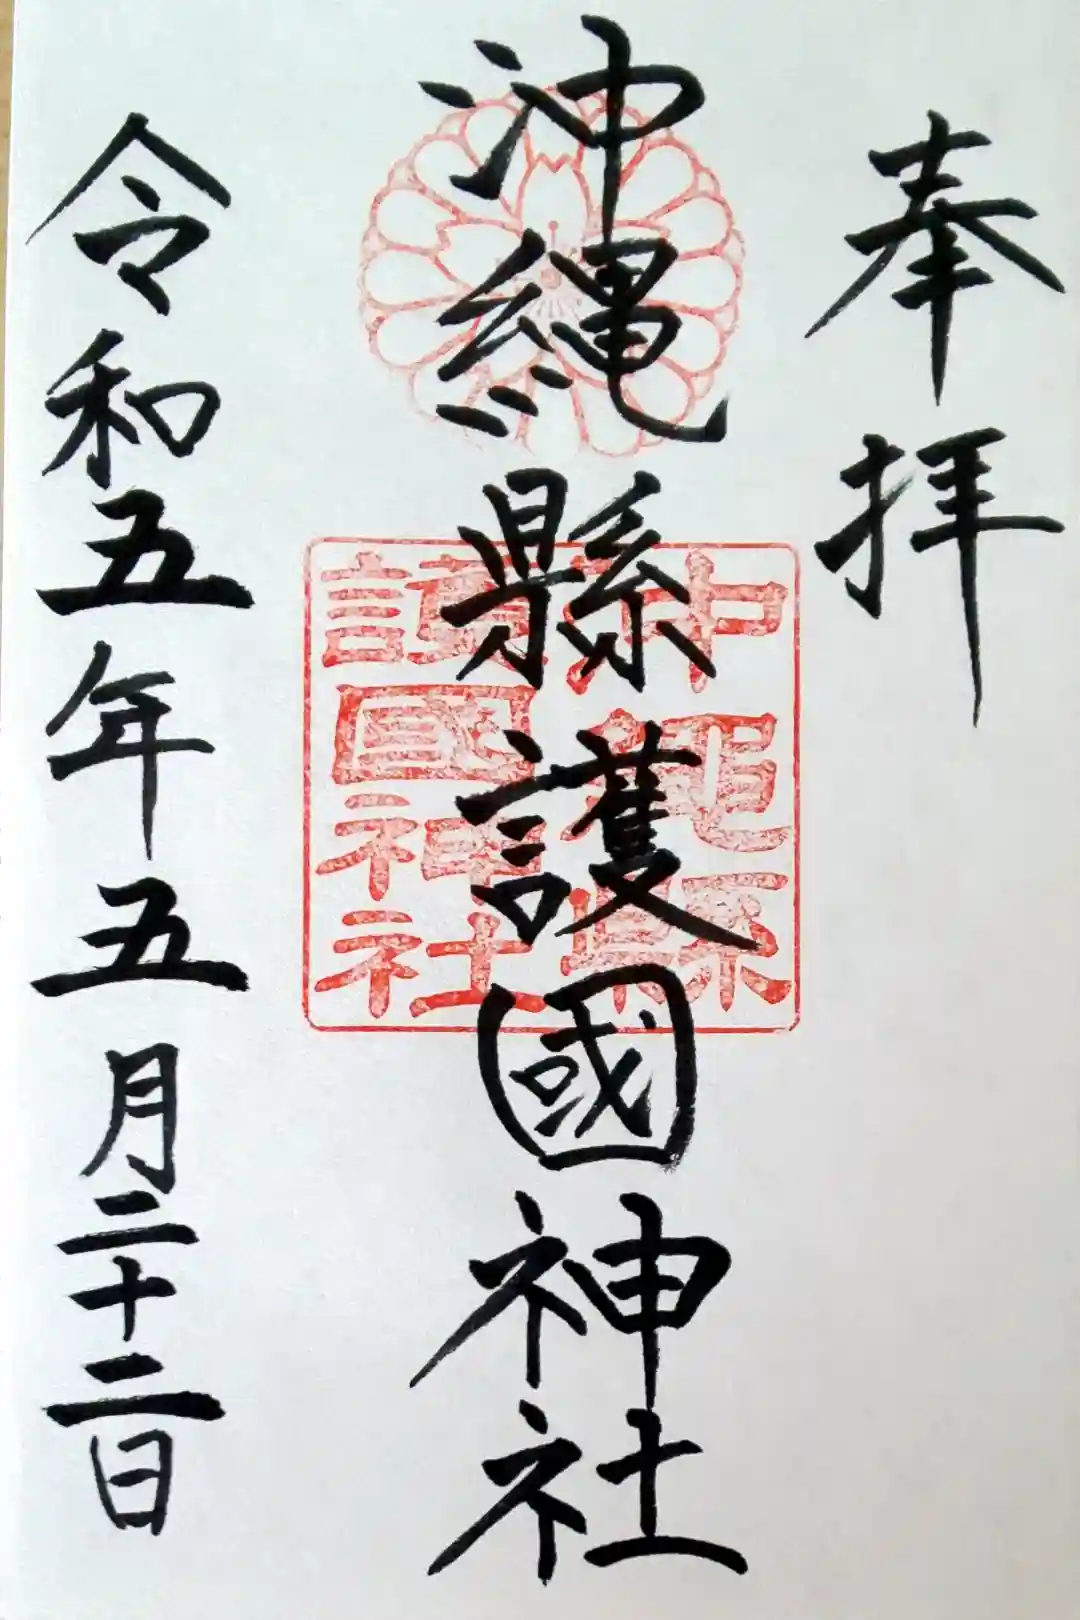 奉拝
沖縄縣護國神社
沖縄縣
護國神社
令和五年五月二十二日